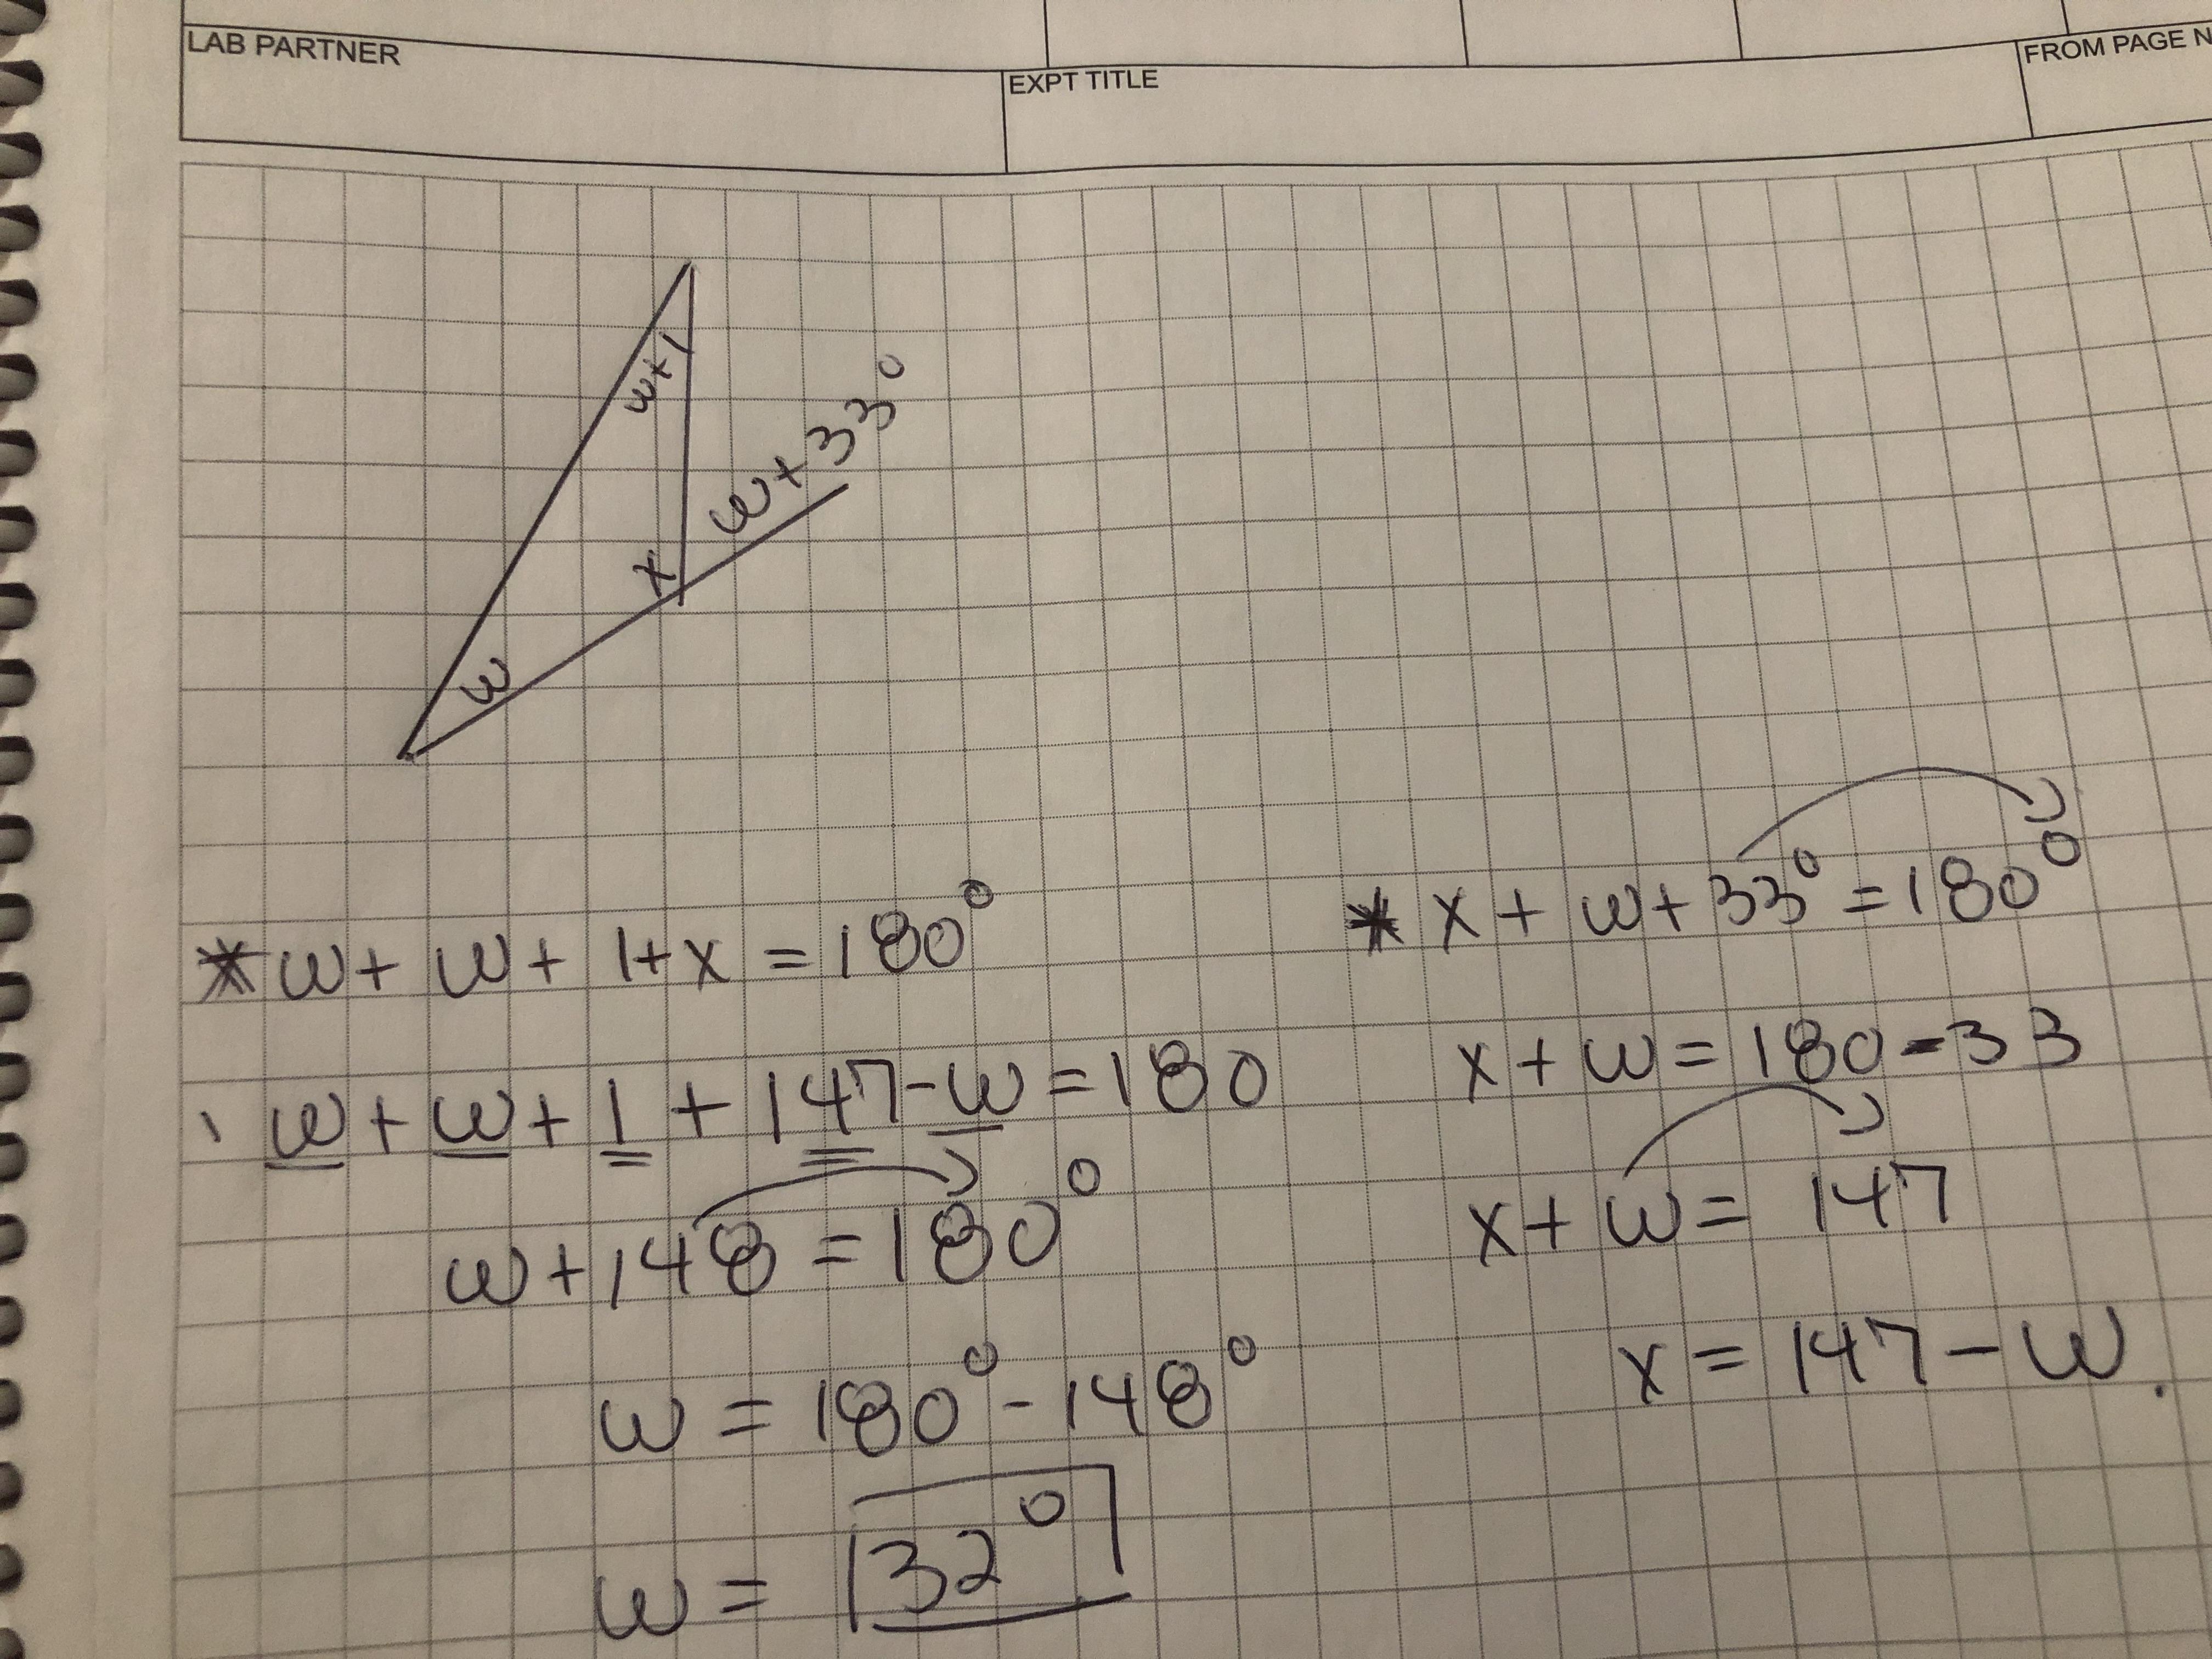 LAB PARTNER
EXPT TITLE
FROM PAGE N
w+1
w+33°
x
w
* w + w + 1 + x = 180°
w + w + 1 + 147 - w = 180
w + 148 = 180°
w = 180° - 148°
w = 32°
* x + w + 33° = 180°
x + w = 180 - 33
x + w = 147
x = 147 - w.